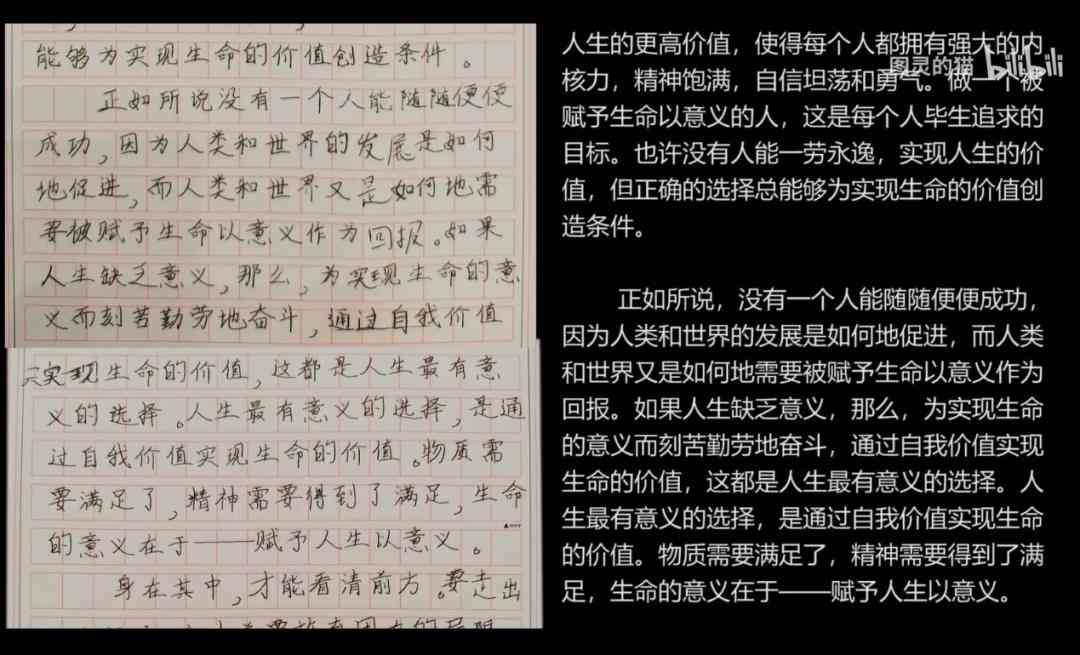 能够为实现生命的价值创造条件。
正如所说没有一个人能随随便便
成功,因为人类和世界的发展是如何
地促进,而人类和世界又是如何地需
要被赋予生命以意义作为回报。如果
人生缺乏意义,那么,为实现生命的意
义而刻苦勤劳地奋斗,通过自我价值
实现生命的价值,这都是人生最有意
义的选择。人生最有意义的选择,是通
过自我价值实现生命的价值。物质需
要满足了,精神需要得到了满足,生命
的意义在于——赋予人生以意义。
身在其中,才能看清前方。要走出
人生的更高价值，使得每个人都拥有强大的内
核力，精神饱满，自信坦荡和勇气。做一个被
赋予生命以意义的人，这是每个人毕生追求的
目标。也许没有人能一劳永逸，实现人生的价
值，但正确的选择总能够为实现生命的价值创
造条件。
正如所说，没有一个人能随随便便成功，
因为人类和世界的发展是如何地促进，而人类
和世界又是如何地需要被赋予生命以意义作为
回报。如果人生缺乏意义，那么，为实现生命
的意义而刻苦勤劳地奋斗，通过自我价值实现
生命的价值，这都是人生最有意义的选择。人
生最有意义的选择，是通过自我价值实现生命
的价值。物质需要满足了，精神需要得到了满
足，生命的意义在于——赋予人生以意义。
图灵的猫 bilibili